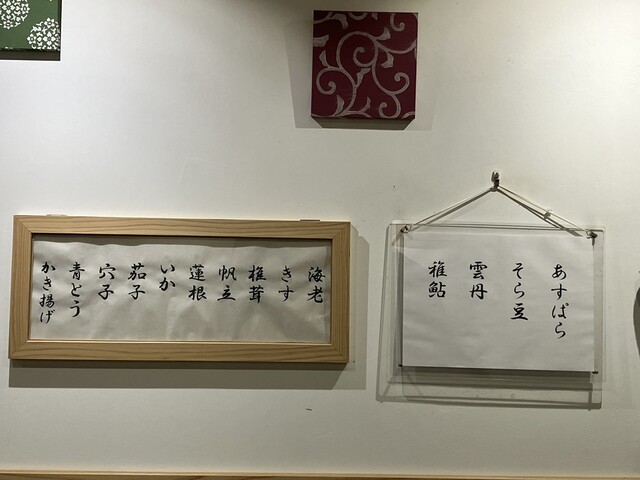 海老
きす
椎茸
帆立
蓮根
いか
茄子
穴子
青とう
かき揚げ
あすぱら
そら豆
雲丹
稚鮎